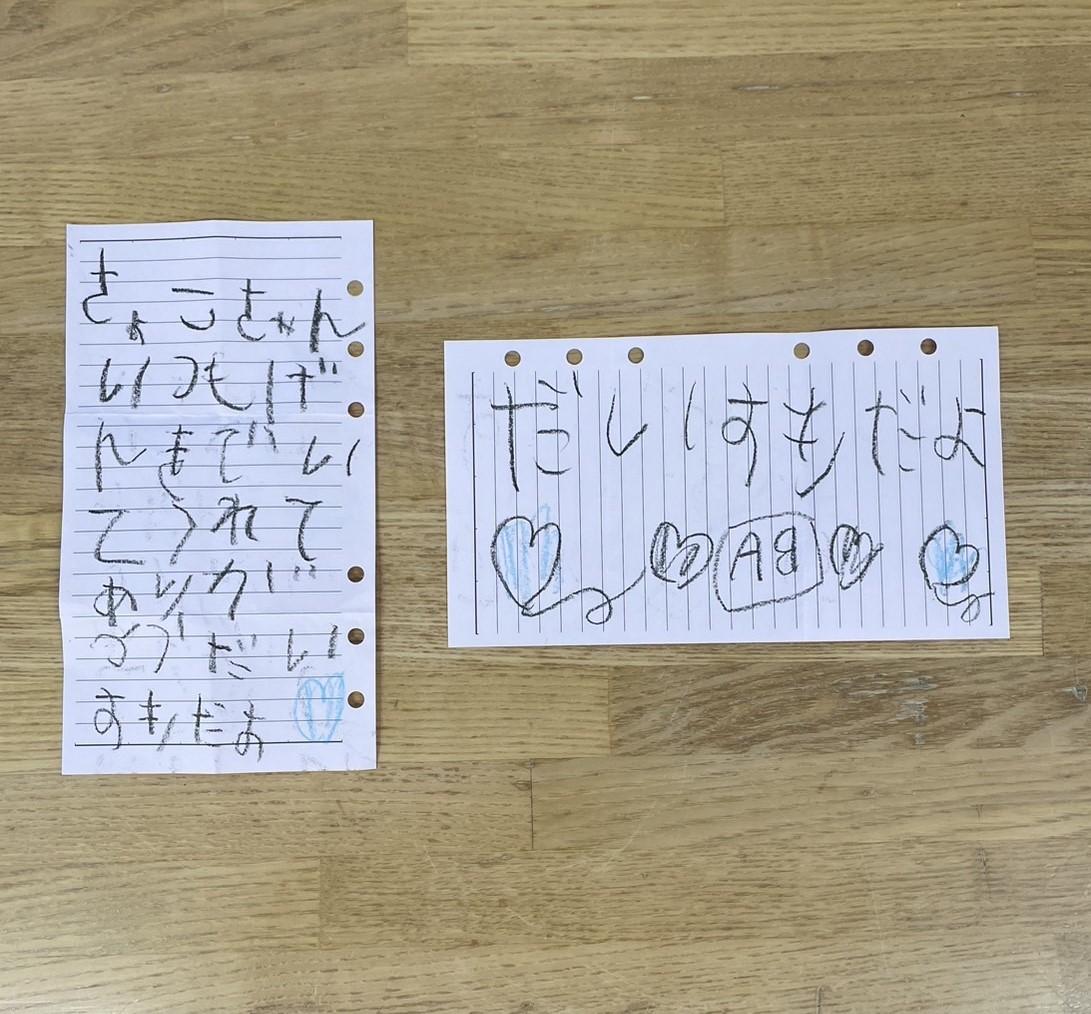 きょこちゃん
いつもげ
んきでい
てくれて
ありが
つづだい
すきだよ
だいすきだよ
AB